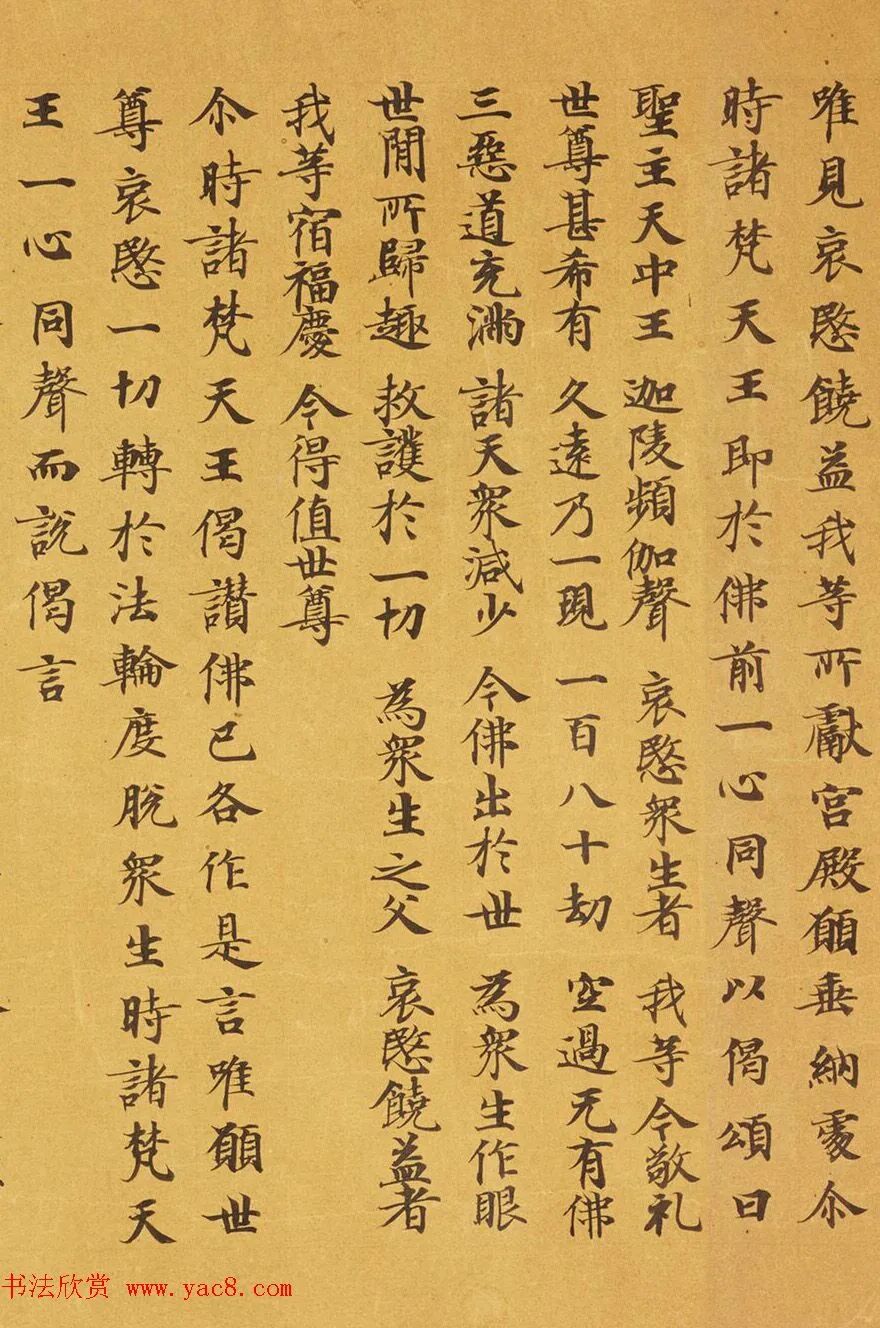 唯見哀愍饒益我等所獻宮殿願垂納處尒
時諸梵天王即於佛前一心同聲以偈頌曰
聖主天中王 迦陵頻伽聲 哀愍衆生者 我等今敬礼
世尊甚希有 久遠乃一現 一百八十劫 空過无有佛
三惡道充滿 諸天衆減少 今佛出於世 為衆生作眼
世間所歸趣 救護於一切 為衆生之父 哀愍饒益者
我等宿福慶 今得值世尊
尒時諸梵天王偈讃佛已各作是言唯願世
尊哀愍一切轉於法輪度脫衆生時諸梵天
王一心同聲而說偈言
书法欣赏 www.yac8.com